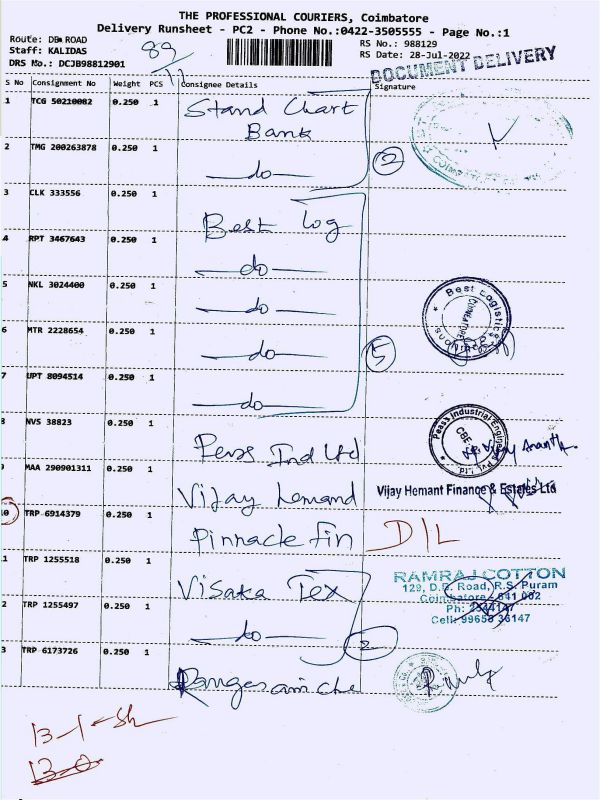 THE PROFESSIONAL COURIERS, Coimbatore
Delivery Runsheet - PC2 - Phone No.:0422-3505555 - Page No.:1
Route: DB ROAD
Staff: KALIDAS
DRS No.: DCJB98812901
RS No.: 988129
RS Date: 28-Jul-2022
DOCUMENT DELIVERY
S No Consignment No Weight PCS Consignee Details Signature
1 TCG 50210082 0.250 1 Stand Chart
Bank
2 TMG 200263878 0.250 1 do
2
3 CLK 333556 0.250 1 Best Log
4 RPT 3467643 0.250 1 do
5 NKL 3024400 0.250 1 do
Best Logistics
6 MTR 2228654 0.250 1 do
5
7 UPT 8094514 0.250 1 do
8 NVS 38823 0.250 1 Peass Ind Ltd
Peass Industrial Engineers Pvt. Ltd
CBE
9 MAA 290901311 0.250 1 Vijay Hemand
Vijay Hemant Finance & Estates Ltd
10 TRP 6914379 0.250 1 Pinnacle Fin D/L
11 TRP 1255518 0.250 1 Visaka Tex
RAMRAJ COTTON
129, D.B. Road, R.S. Puram
Coimbatore - 641 002
Ph:
Cell: 99658 36147
2 TRP 1255497 0.250 1 do
2
3 TRP 6173726 0.250 1